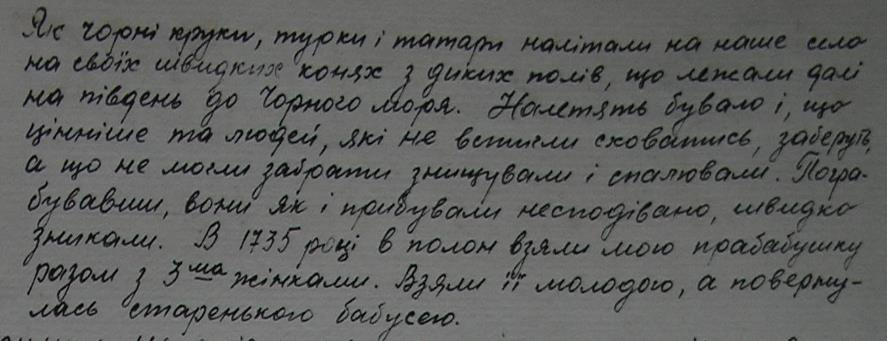 Як чорні круки, турки і татари налітали на наше село
на своїх швидких конях з диких полів, що лежали далі
на південь до Чорного моря. Налетять бувало і, що
цінніше та людей, які не встигли сховатись, заберуть,
а що не могли забрати знищували і спалювали. Погра-
бувавши, вони як і прибували несподівано, швидко
зникали. В 1735 році в полон взяли мою прабабушку
разом з 3ма жінками. Взяли її молодою, а поверну-
лась старенького бабусею.